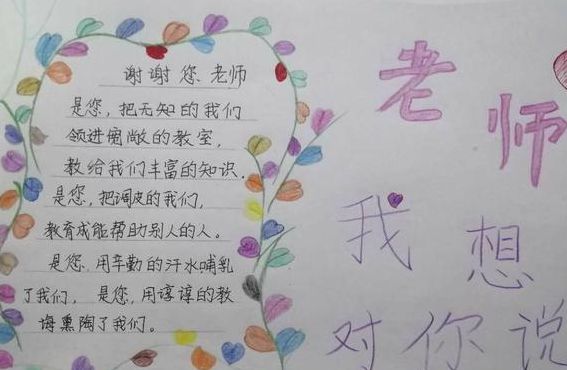 谢谢您 老师
是您，把无知的我们
领进宽敞的教室，
教给我们丰富的知识．
是您，把调皮的我们，
教育成能帮助别人的人。
是您．用辛勤的汗水哺乳
了我们， 是您，用谆谆的教
诲熏陶了我们。
老师
我想
对你说